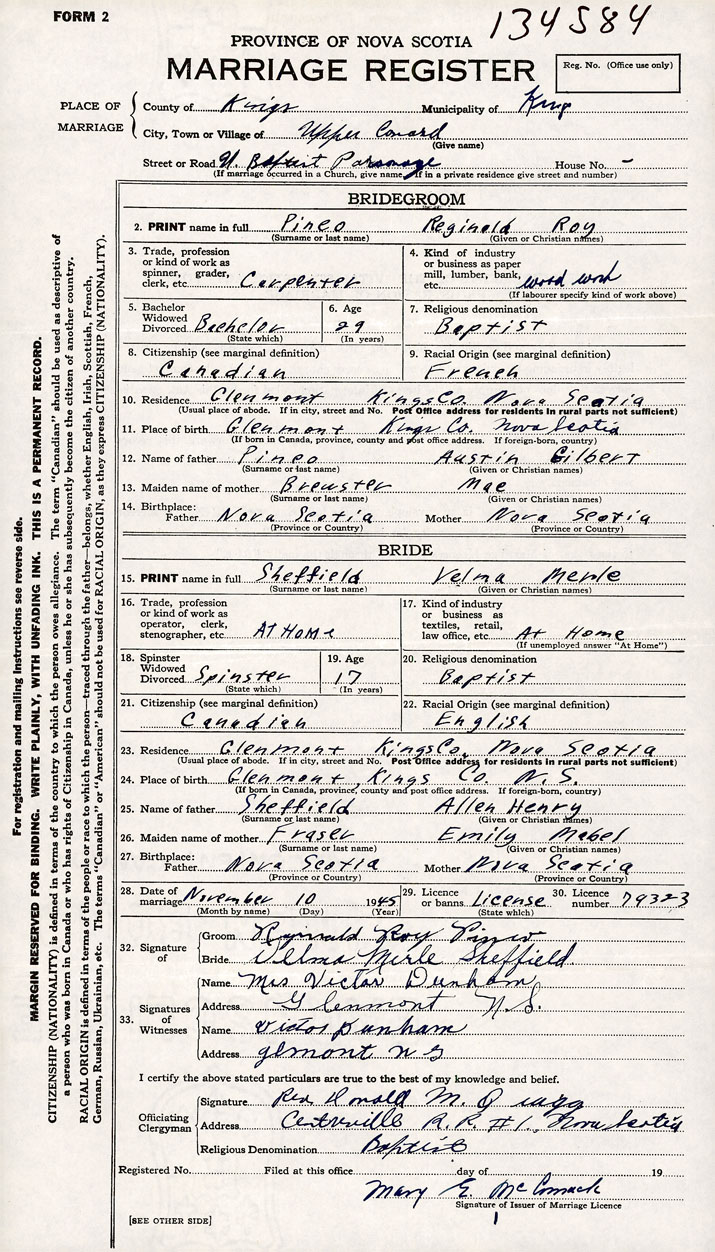 FORM 2
134584
PROVINCE OF NOVA SCOTIA
MARRIAGE REGISTER
Reg. No. (Office use only)
PLACE OF MARRIAGE
County of Kings Municipality of Kings
City, Town or Village of Upper Canard
(Give name)
Street or Road U. Baptist Parsonage House No. -
(If marriage occurred in a Church, give name. If in a private residence give street and number)
BRIDEGROOM
2. PRINT name in full Pineo Reginald Roy
(Surname or last name) (Given or Christian names)
3. Trade, profession or kind of work as spinner, grader, clerk, etc. Carpenter
4. Kind of industry or business as paper mill, lumber, bank, etc. wood work
(If labourer specify kind of work above)
5. Bachelor Widowed Divorced Bachelor
(State which)
6. Age 29
(In years)
7. Religious denomination
Baptist
8. Citizenship (see marginal definition)
Canadian
9. Racial Origin (see marginal definition)
French
10. Residence Glenmont Kings Co. Nova Scotia
(Usual place of abode. If in city, street and No. Post Office address for residents in rural parts not sufficient)
11. Place of birth Glenmont Kings Co. Nova Scotia
(If born in Canada, province, county and post office address. If foreign-born, country)
12. Name of father Pineo Austin Gilbert
(Surname or last name) (Given or Christian names)
13. Maiden name of mother Brewster Mae
(Surname or last name) (Given or Christian names)
14. Birthplace:
Father Nova Scotia Mother Nova Scotia
(Province or Country) (Province or Country)
BRIDE
15. PRINT name in full Sheffield Velma Merle
(Surname or last name) (Given or Christian names)
16. Trade, profession or kind of work as operator, clerk, stenographer, etc. AT HOME
17. Kind of industry or business as textiles, retail, law office, etc. At Home
(If unemployed answer "At Home")
18. Spinster Widowed Divorced Spinster
(State which)
19. Age 17
(In years)
20. Religious denomination
Baptist
21. Citizenship (see marginal definition)
Canadian
22. Racial Origin (see marginal definition)
English
23. Residence Glenmont Kings Co. Nova Scotia
(Usual place of abode. If in city, street and No. Post Office address for residents in rural parts not sufficient)
24. Place of birth Glenmont, Kings Co. N.S.
(If born in Canada, province, county and post office address. If foreign-born, country)
25. Name of father Sheffield Allen Henry
(Surname or last name) (Given or Christian names)
26. Maiden name of mother Fraser Emily Mabel
(Surname or last name) (Given or Christian names)
27. Birthplace:
Father Nova Scotia Mother Nova Scotia
(Province or Country) (Province or Country)
28. Date of marriage November 10 1945
(Month by name) (Day) (Year)
29. Licence or banns License
(State which)
30. Licence number 79323
32. Signature of
Groom Reginald Roy Pineo
Bride Velma Merle Sheffield
33. Signatures of Witnesses
Name Mrs Victor Dunham
Address Glenmont N.S.
Name Victor Dunham
Address glmont n s
I certify the above stated particulars are true to the best of my knowledge and belief.
Officiating Clergyman
Signature Rev. Donald M.
Address Centreville R.R. #1, Nova Scotia
Religious Denomination Baptist
Registered No. Filed at this office day of 19
Mary E. McCormack
Signature of Issuer of Marriage Licence
[SEE OTHER SIDE]
For registration and mailing instructions see reverse side.
MARGIN RESERVED FOR BINDING. WRITE PLAINLY, WITH UNFADING INK. THIS IS A PERMANENT RECORD.
CITIZENSHIP (NATIONALITY) is defined in terms of the country to which the person owes allegiance. The term "Canadian" should be used as descriptive of
a person who was born in Canada or who has rights of Citizenship in Canada, unless he or she has subsequently become the citizen of another country.
RACIAL ORIGIN is defined in terms of the people or race to which the person—traced through the father—belongs, whether English, Irish, Scottish, French,
German, Russian, Ukrainian, etc. The terms "Canadian" or "American" should not be used for RACIAL ORIGIN, as they express CITIZENSHIP (NATIONALITY).